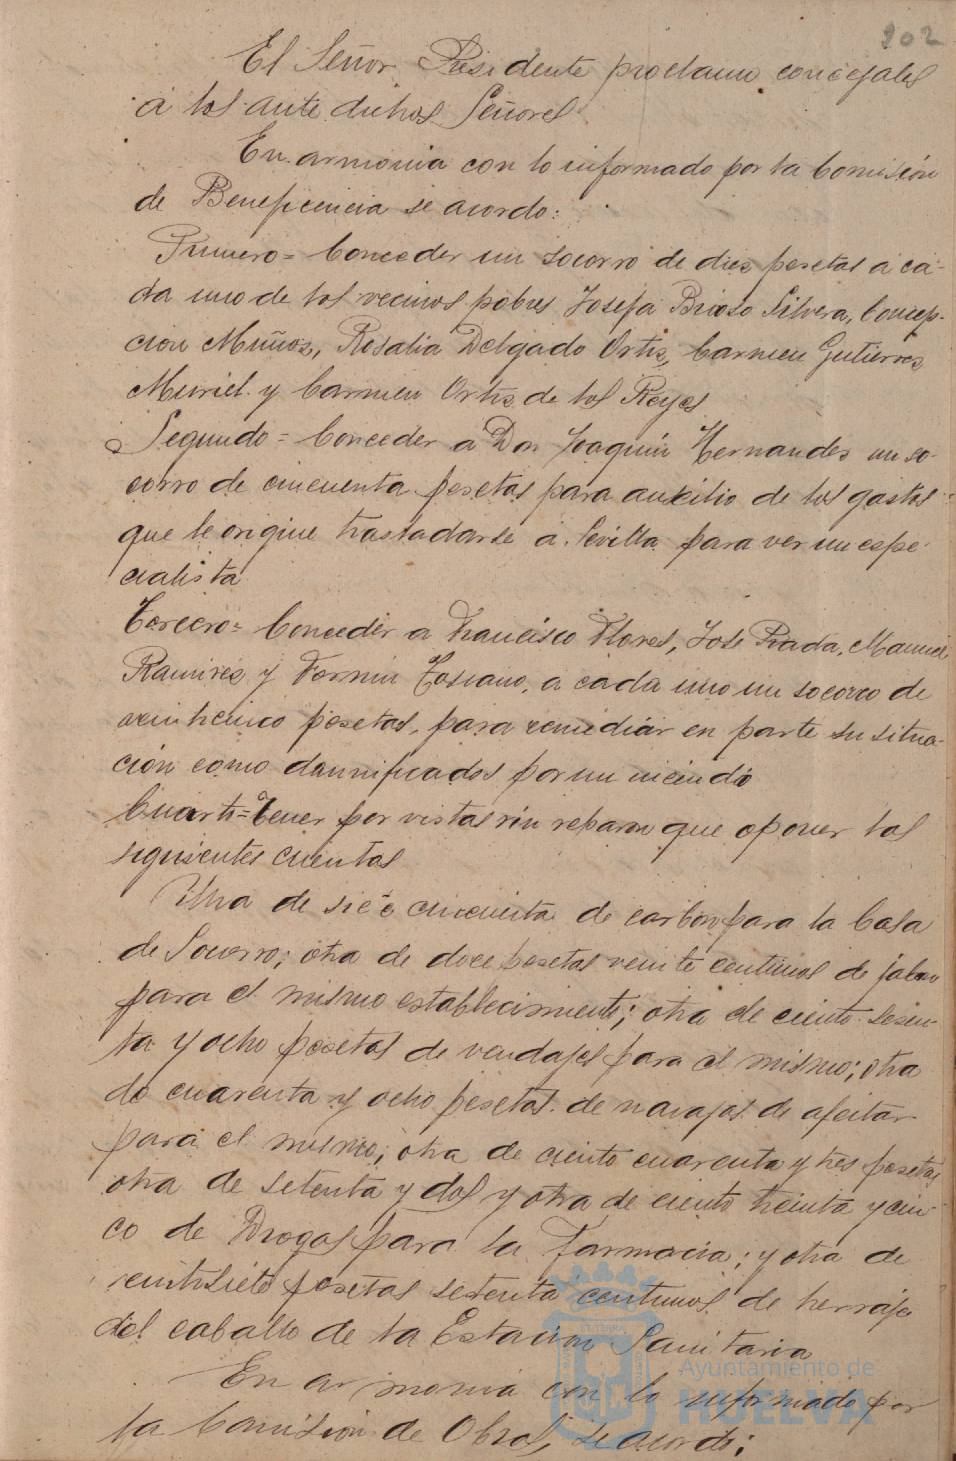 202
El Señor Presidente proclamo concejales
á los ante dichos Señores
En armonia con lo informado por la Comisión
de Beneficencia se acordo:
Primero = Conceder un socorro de diez pesetas a ca-
da uno de los vecinos pobres Josefa Brioso Silvera, Concep-
cion Muñoz, Rosalia Delgado Ortiz, Carmen Gutierrez
Muriel y Carmen Ortiz de los Reyes
Segundo = Conceder a Don Joaquin Hernandez un so-
corro de cincuenta pesetas para auxilio de los gastos
que le origine trasladarse a Sevilla para ver un espe-
cialista
Tercero = Conceder a Francisco Flores, José Prada, Manuel
Ramirez y Fermin Toscano, a cada uno un socorro de
veinticinco pesetas, para remediar en parte su situa-
ción como damnificados por un incendio
Cuarto = Tener por vistas sin reparo que oponer las
siguientes cuentas
Una de cincuenta de carbon para la Casa
de Socorro; otra de doce pesetas veinte centimos de jabon
para el mismo establecimiento; otra de ciento sesen-
ta y ocho pesetas de vendajes para el mismo; otra
de cuarenta y ocho pesetas de navajas de afeitar
para el mismo; otra de ciento cuarenta y tres pesetas
otra de setenta y dos y otra de ciento treinta y cin-
co de Drogas para la Farmacia; y otra de
veintisiete pesetas setenta centimos de herraje
del caballo de la Estacion Sanitaria
En armonia con lo informado por
la Comision de Obras, se acordo;
Ayuntamiento de
HUELVA